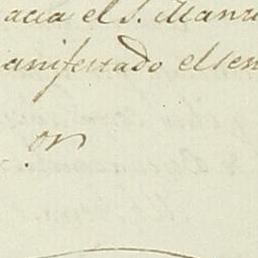 acia el S. Manu
anifestado el sen
on